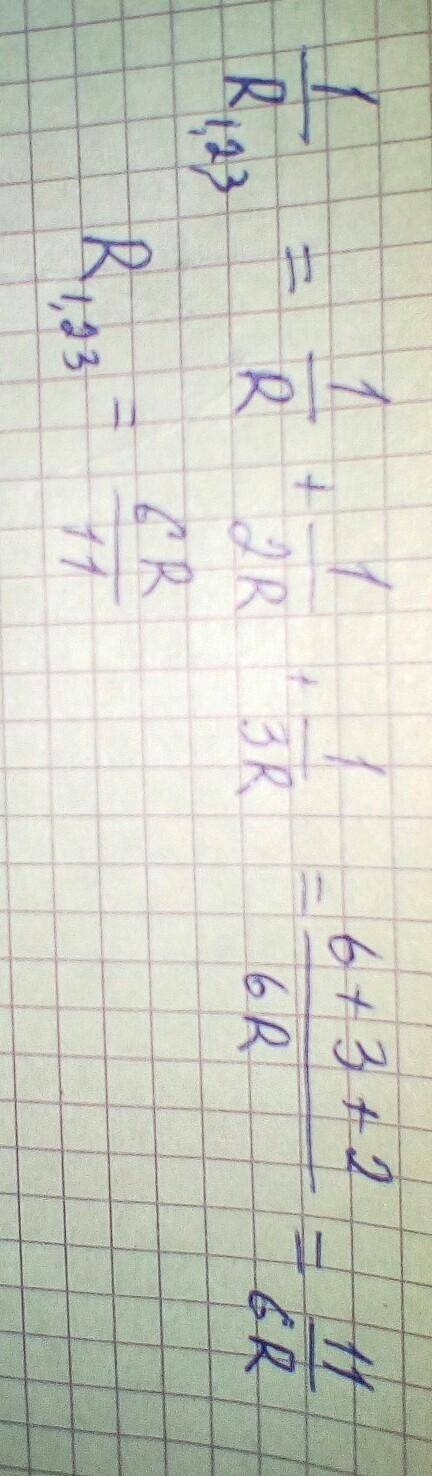 1/R₁,₂,₃ = 1/R + 1/2R + 1/3R = (6+3+2)/6R = 11/6R
R₁,₂₃ = 6R/11